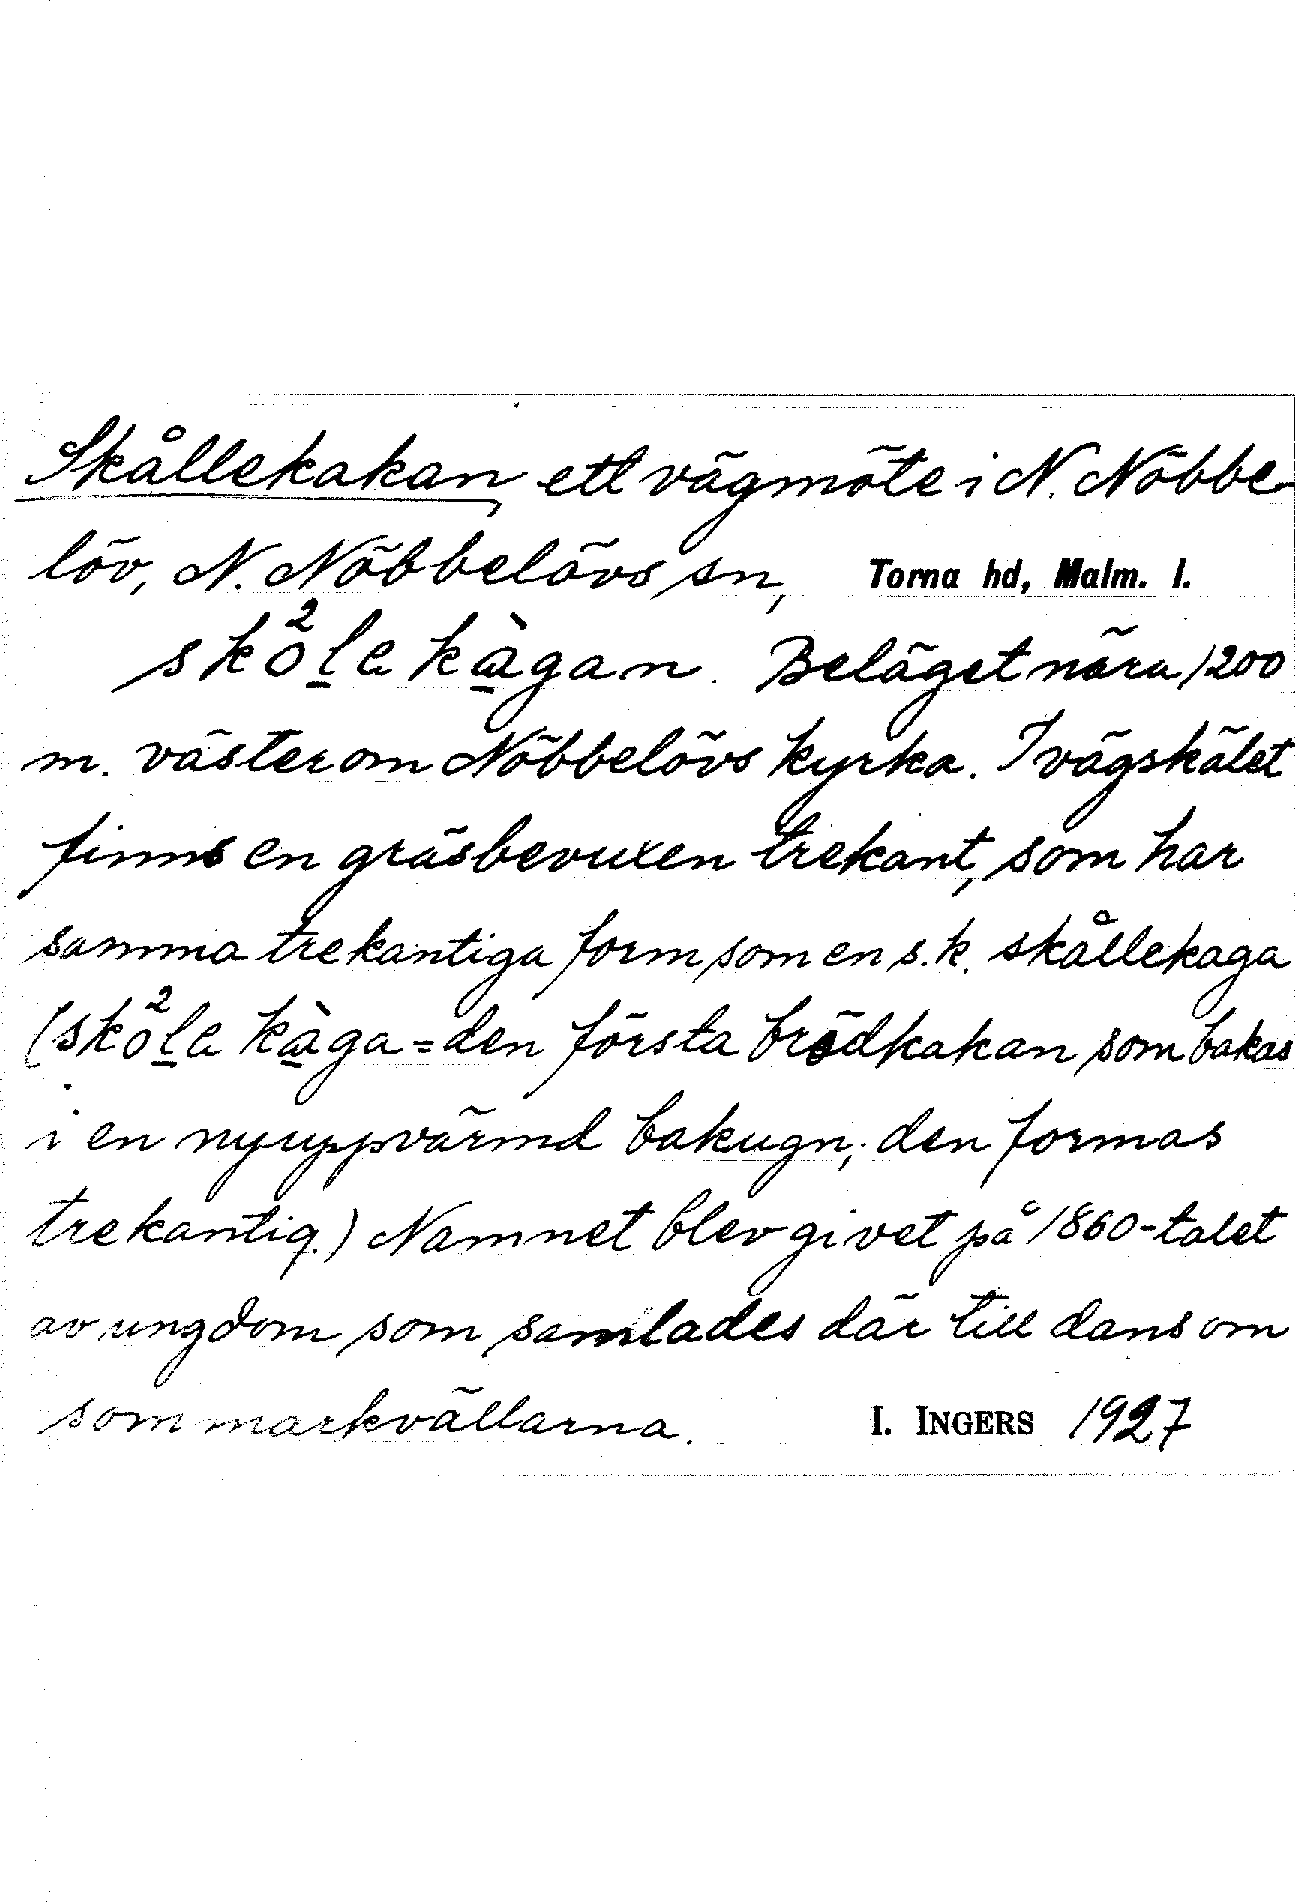 Skållekakan, ett vägmöte i N. Nöbbe-
löv, N. Nöbbelövs sn, Torna hd, Malm. l.
skö²l̲e kà̲gan. Beläget nära 1200
m. väster om Nöbbelövs kyrka. I vägskälet
finns en gräsbevuxen trekant, som har
samma trekantiga form som en s.k. skållekaga
(skö²l̲e kà̲ga = den första brödkakan som bakas
i en nyuppvärmd bakugn; den formas
trekantig.) Namnet blev givet på 1860-talet
av ungdom som samlades där till dans om
sommarkvällarna. I. INGERS 1927